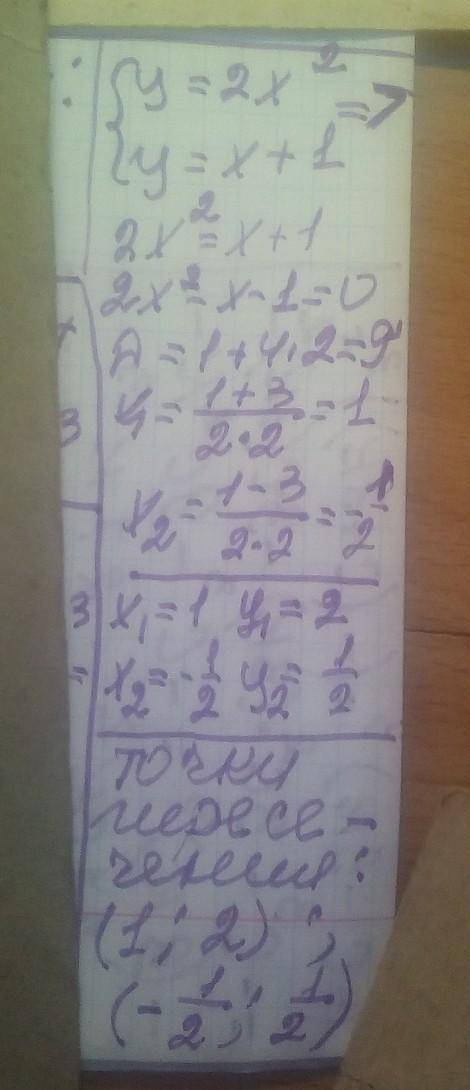 { y = 2x² =>
{ y = x + 1
2x² = x + 1
2x² - x - 1 = 0
D = 1 + 4·2 = 9
x₁ = (1+3)/(2·2) = 1
x₂ = (1-3)/(2·2) = -1/2
x₁ = 1 y₁ = 2
x₂ = -1/2 y₂ = 1/2
точки
пересе-
чения:
(1; 2);
(-1/2; 1/2)